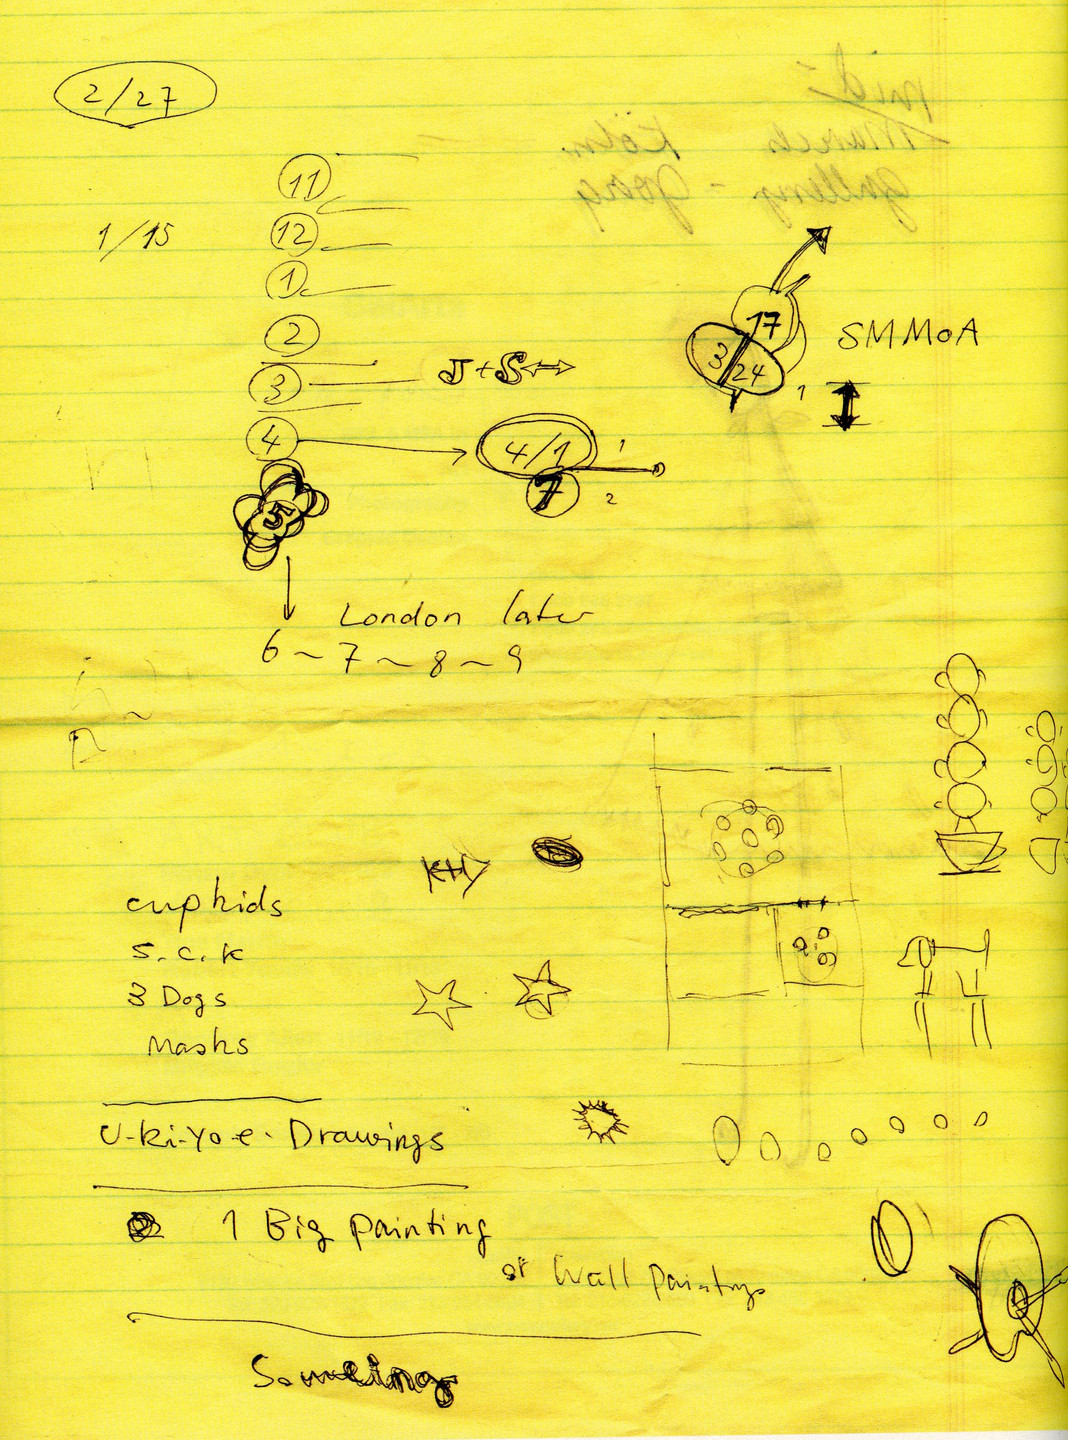 2/27
11
1/15 12
1
2
3 J+S
17
3 24 SMMoA
1
4 4/1 1
7 2
5
London later
6 ~ 7 ~ 8 ~ 9
cup kids
S.C.K
3 Dogs
Masks
U-ki-yo-e. Drawings
1 Big painting
or Wall Paintings